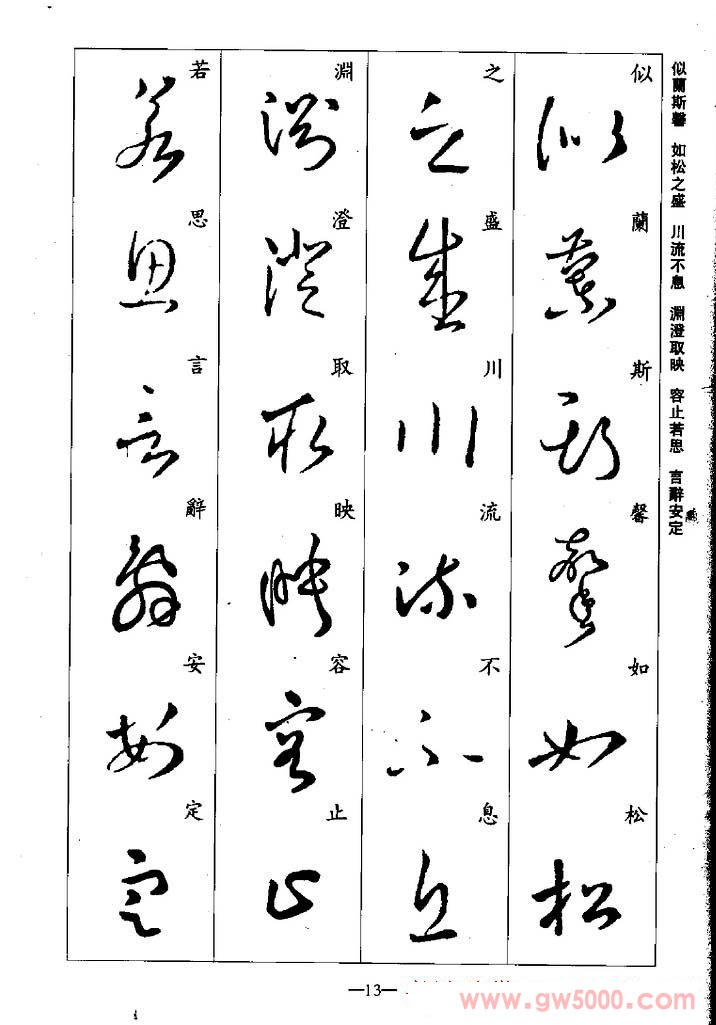 似蘭斯馨 如松之盛 川流不息 淵澄取映 容止若思 言辭安定
似蘭斯馨如松
之盛川流不息
淵澄取映容止
若思言辭安定
—13—
www.gw5000.com